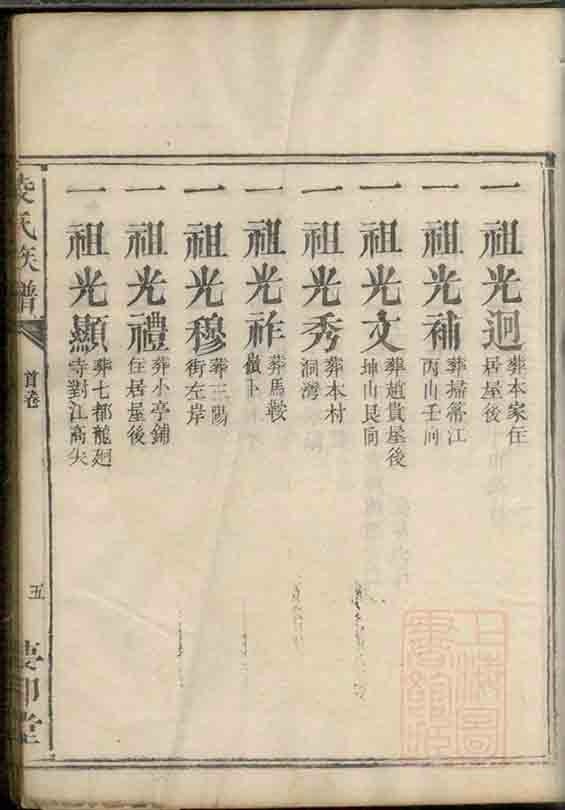 一祖光迥 葬本家住居屋後
一祖光補 葬掃箒江丙山壬向
一祖光文 葬趙貴屋後坤山艮向
一祖光秀 葬本村洞灣
一祖光祚 葬馬鞍嶺上
一祖光穆 葬三陽街左岸
一祖光禮 葬小亭鋪住居屋後
一祖光顯 葬七都龍廻寺對江高尖
氏族譜
首卷
五
堂
上海圖書館藏